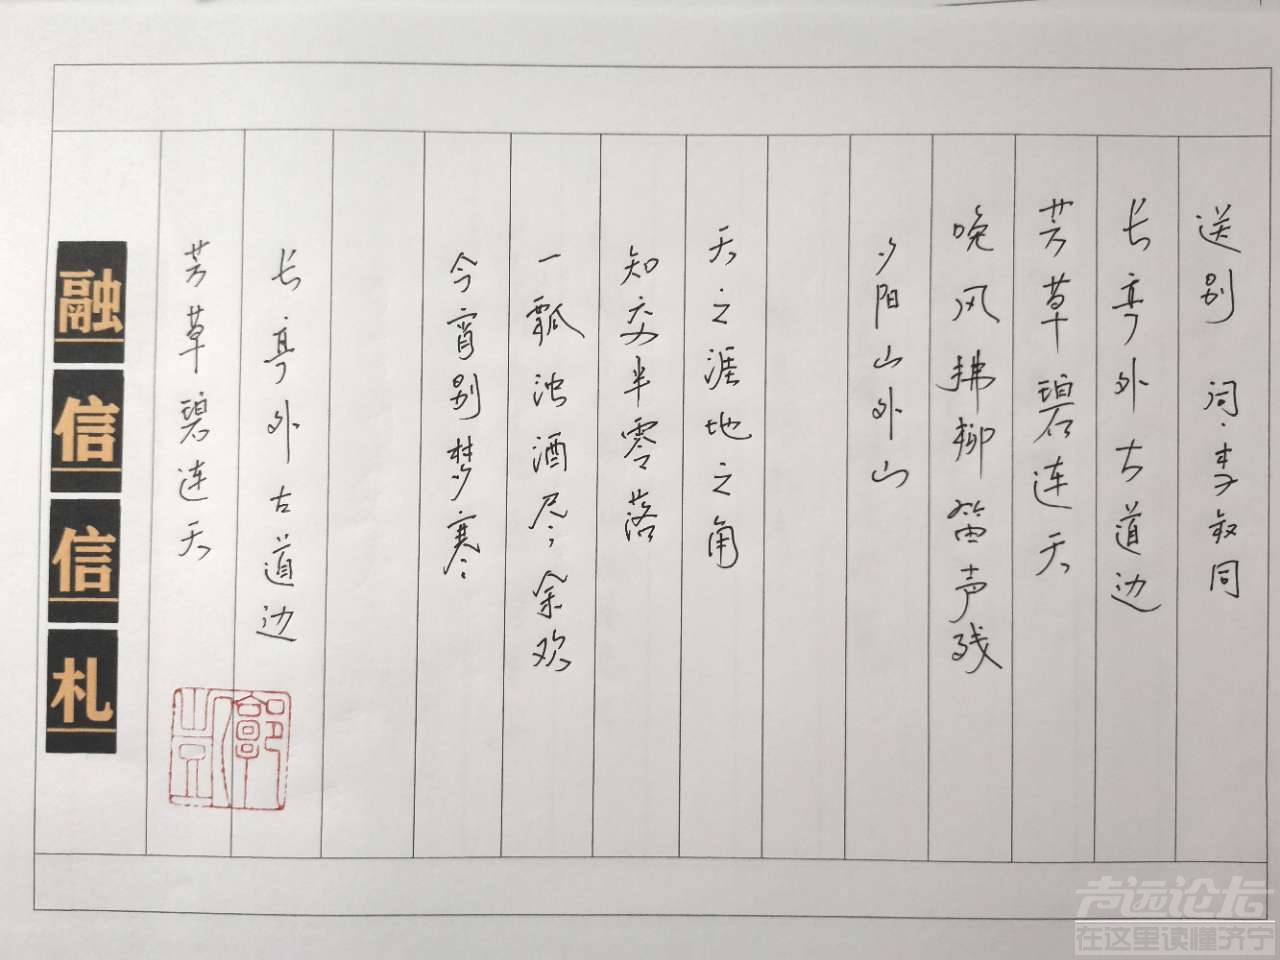 送别 词·李叔同
长亭外古道边
芳草碧连天
晚风拂柳笛声残
夕阳山外山
天之涯地之角
知交半零落
一瓢浊酒尽余欢
今宵别梦寒
长亭外古道边
芳草碧连天
融信信札
声远论坛
在这里读懂济宁